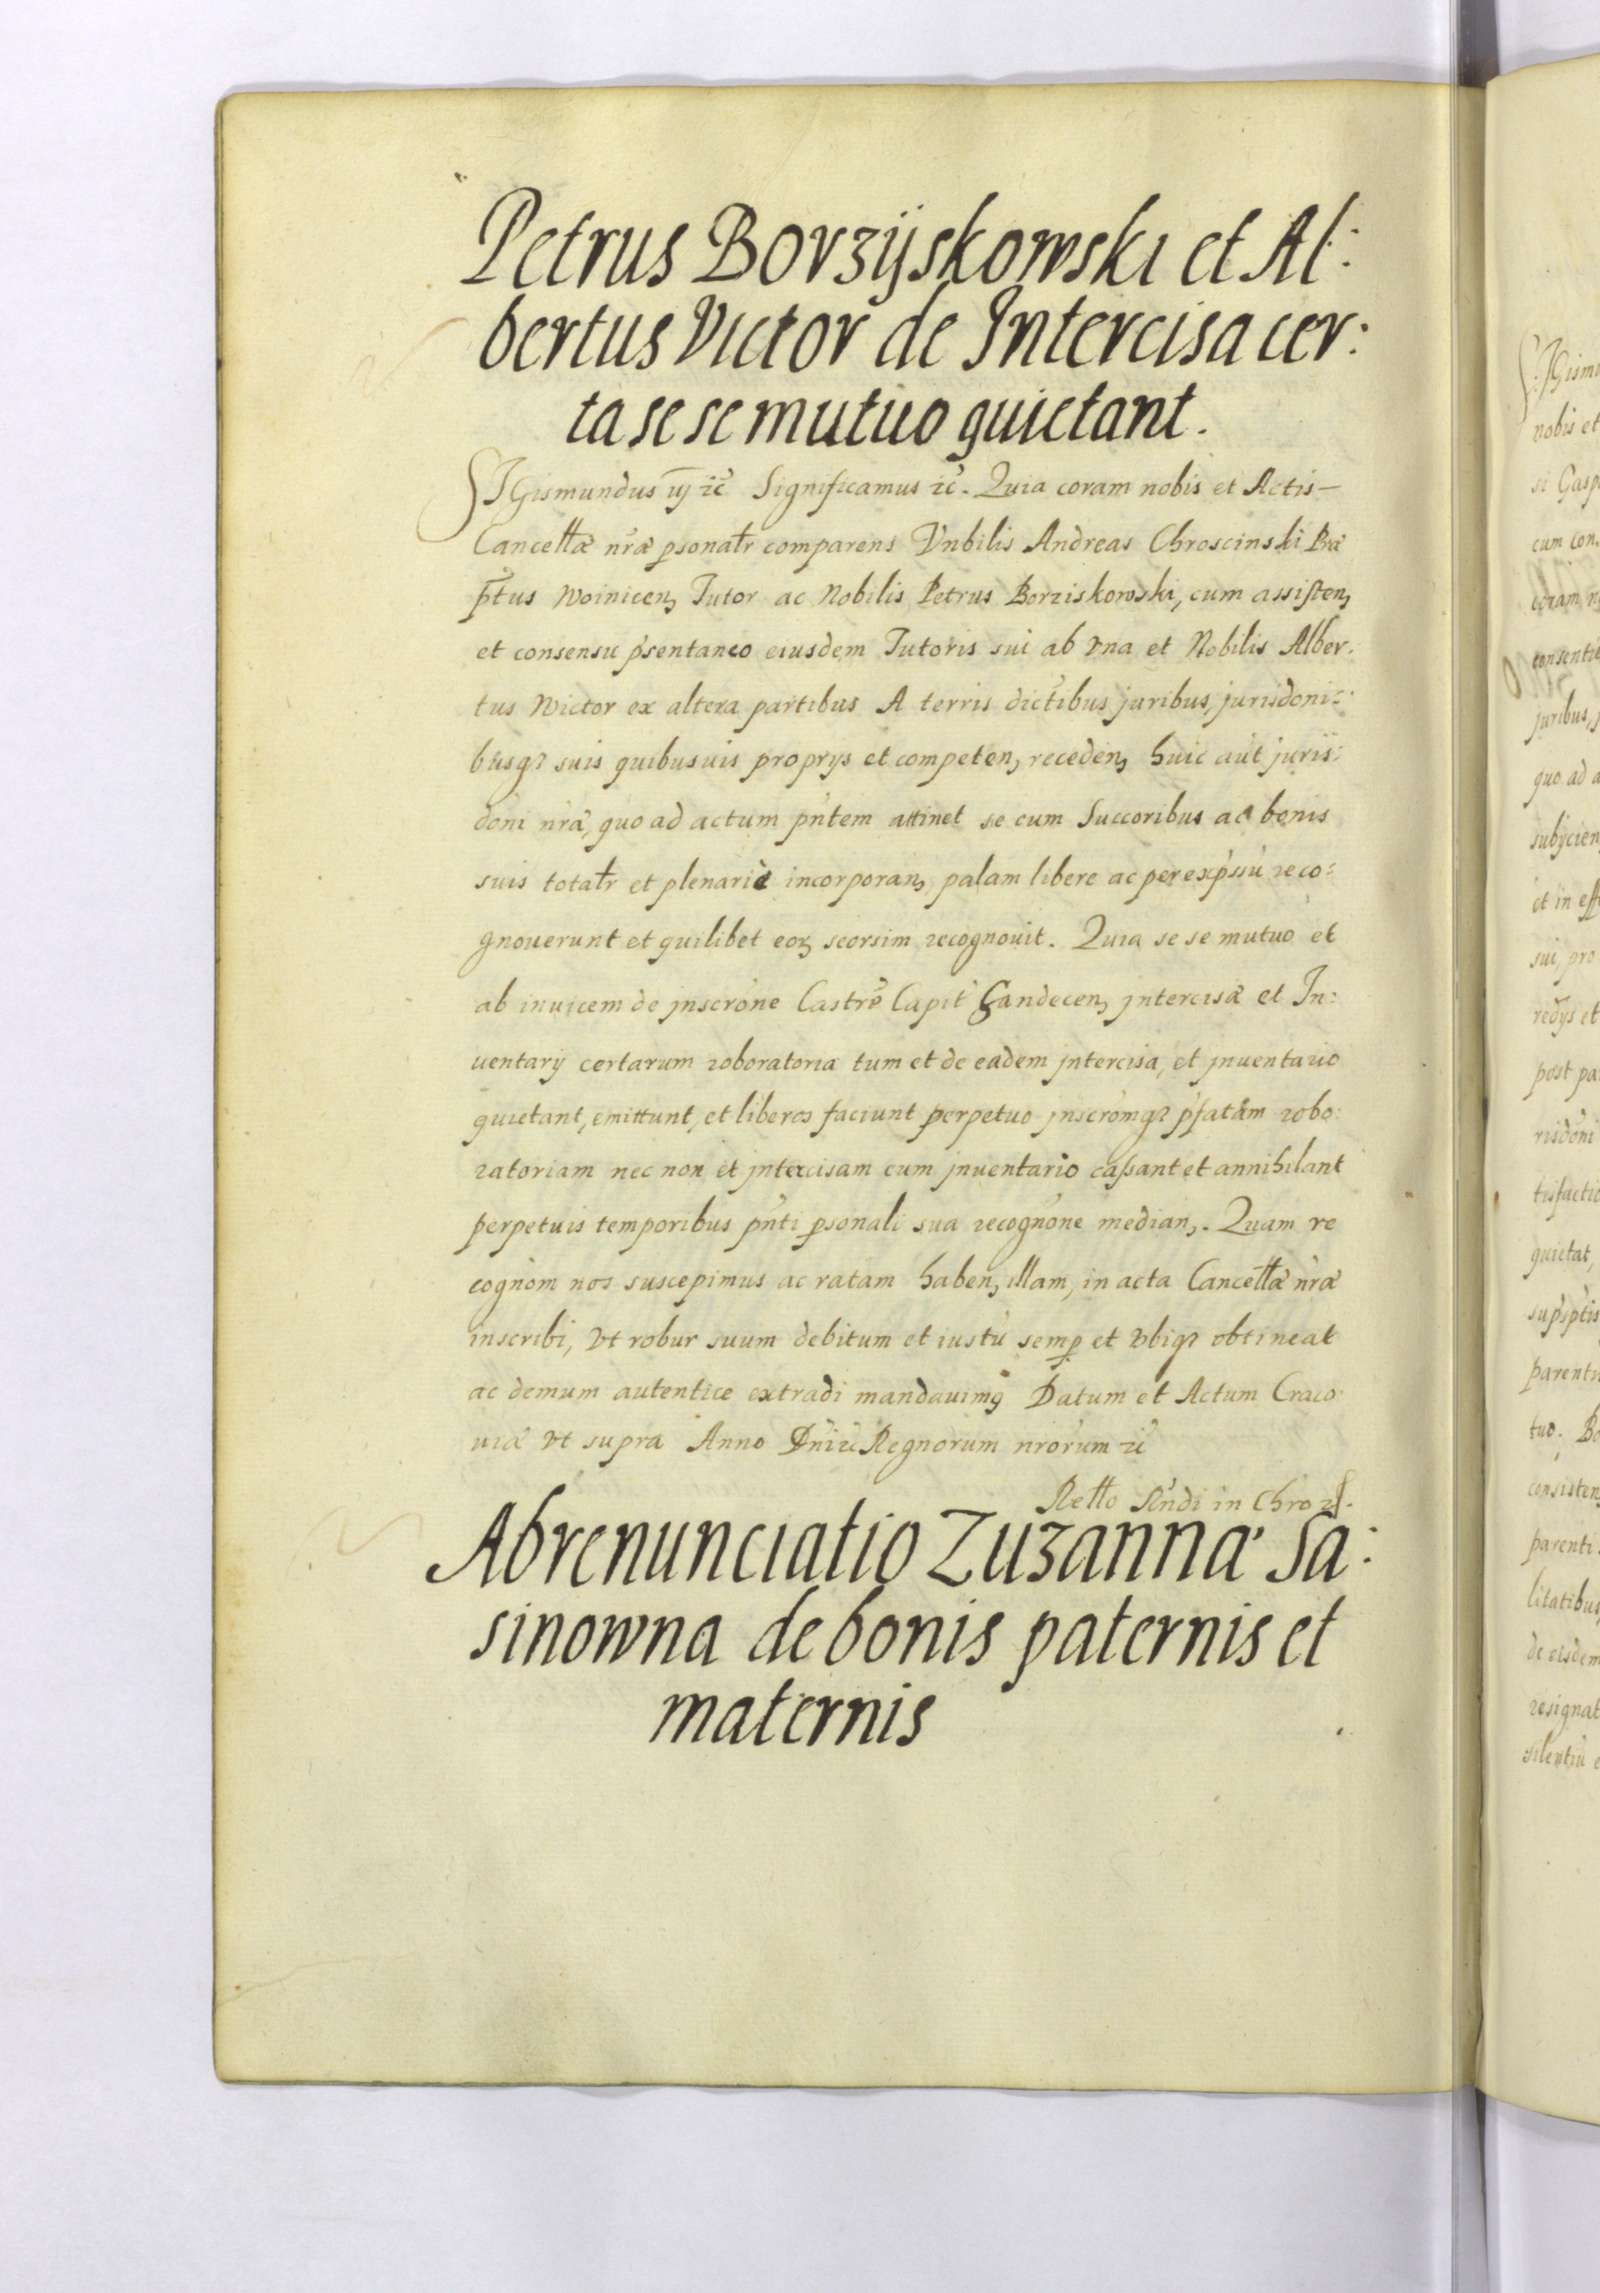 Petrus Borzÿskowski et Al:
bertus Victor de Intercisa cer:
ta se se mutuo quietant.
SIGismundus iij ꝛc̃ Significamus ꝛc̃. Quia coram nobis et Actis—
Cancellæ nr̃æ psonalr comparens Vnbilis Andreas Chroscinski Præ
ptus Woinicen, Tutor ac Nobilis Petrus Borziskowski, cum assisten,
et consensu pr̃sentaneo eiusdem Tutoris sui ab vna et Nobilis Alber.
tus Wictor ex altera partibus A terris dictibus juribus, jurisdoni:
busq suis quibusuis proprys et competen, receden, huic aut juris:
doni nr̃æ, quo ad actum pñtem attinet se cum Succoribus ac bonis
suis totalr et plenariè incorporan, palam libere ac per exp̃ssũ reco:
gnouerunt et quilibet eoꝝ seorsim recognouit. Quia se se mutuo et
ab inuicem de jnscrone Castrẽ Capit Sandecen, jntercisæ et In:
uentarij certarum roboratoria tum et de eadem jntercisa, et jnuentario
quietant, emittunt, et liberos faciunt perpetuo jnscromq pr̃fatam robo:
ratoriam nec non et jntercisam cum jnuentario caſsant et annihilant
perpetuis temporibus pñti psonali sua recognone median,. Quam re
cognom nos suscepimus ac ratam haben, illam, in acta Cancellæ nr̃æ
inscribi, vt robur suum debitum et iustũ semp et vbiq obtineat
ac demum autentice extradi mandauimꝰ Datum et Actum Craco
uiæ vt supra Anno Dñi ꝛc̃ Regnorum nrorum ꝛc̃
Rello in Chro
Abrenunciatio Zuzanna Sa:
sinowna de bonis paternis et
maternis